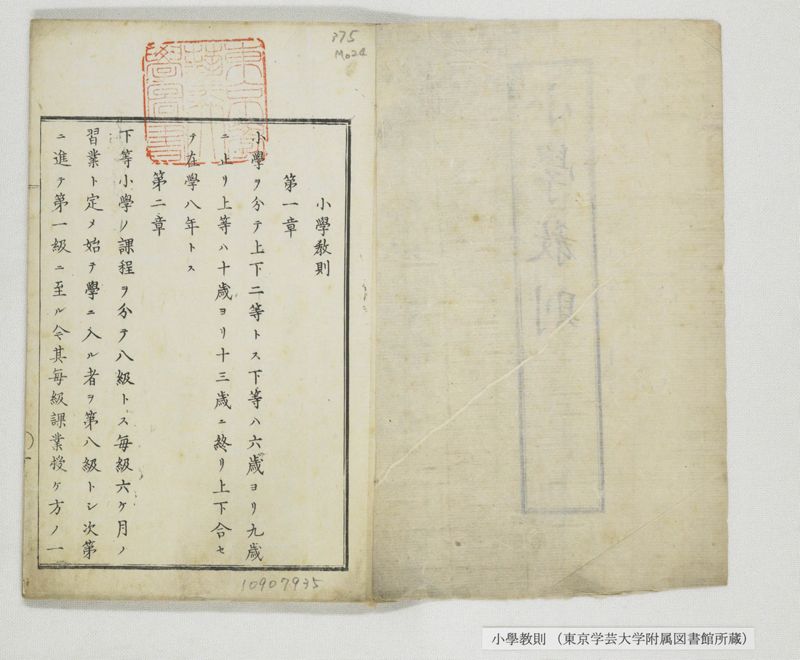 375
Mo24
小學敎則
第一章
小學ヲ分テ上下二等トス下等ハ六歳ヨリ九歳
ニ止リ上等ハ十歳ヨリ十三歳ニ終リ上下合セ
テ在學八年トス
第二章
下等小學ノ課程ヲ分テ八級トス毎級六ケ月ノ
習業ト定メ始テ學ニ入ル者ヲ第八級トシ次第
ニ進テ第一級ニ至ル今其毎級課業授ケ方ノ一
10907935
小學敎則
小學教則 （東京学芸大学附属図書館所蔵）